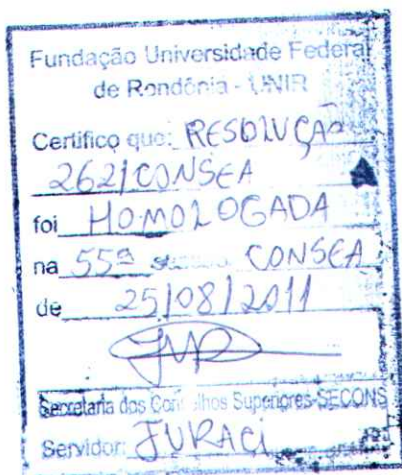 Fundação Universidade Federal
de Rondônia - UNIR
Certifico que: RESOLUÇÃO
262/CONSEA
foi HOMOLOGADA
na 55ª CONSEA
de 25/08/2011
Secretaria dos Conselhos Superiores-SECONS
Servidor: JURACI